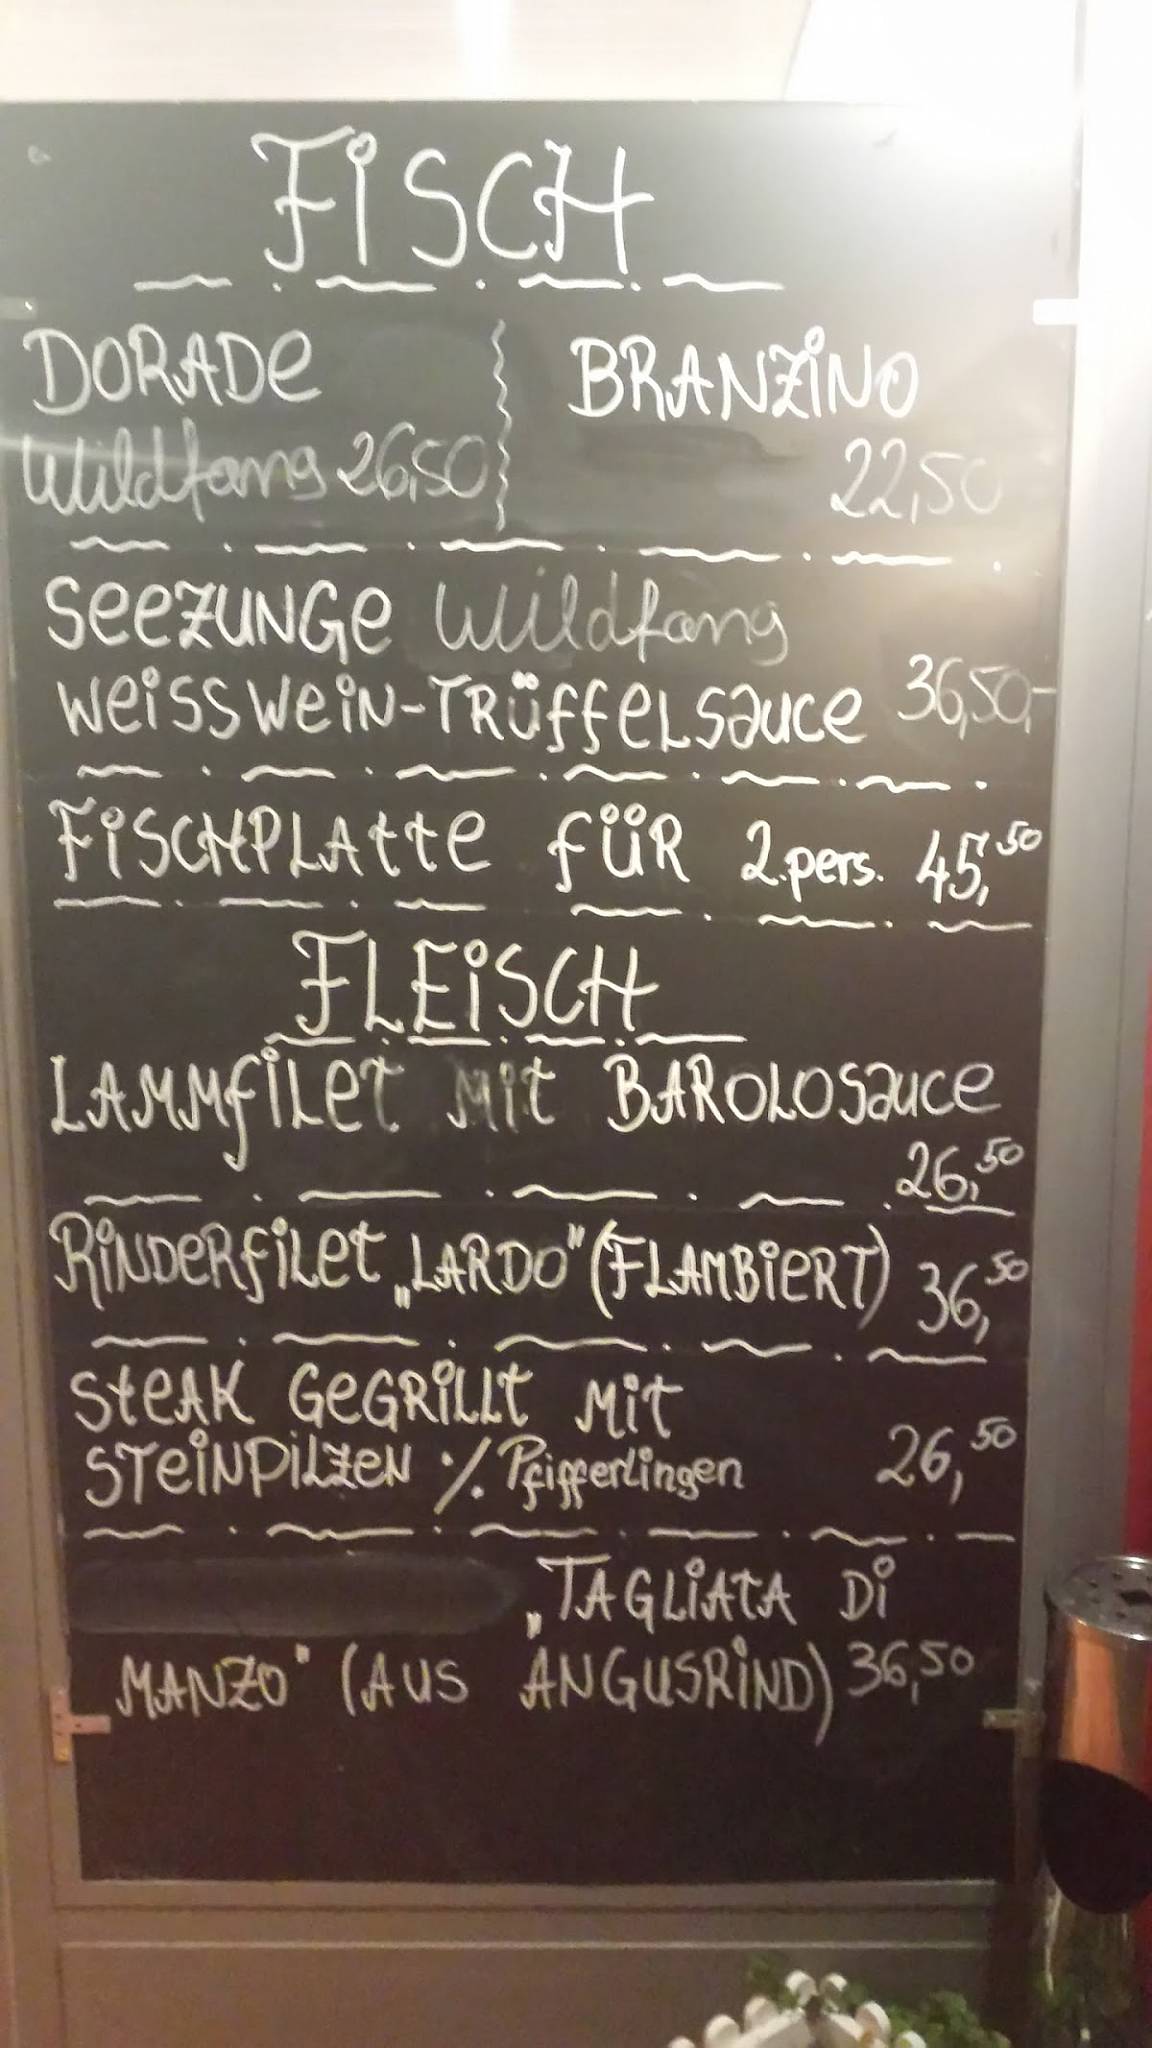 FiSCH
DORADe BRANZiNO
Wildfang 26,50 22,50
SeeZUNGe Wildfang
WeissWeiN-TRüffeLsauce 36,50,-
FiSCHPLAtte füR 2.pers. 45,50
FLEiSCH
LAMMfiLet Mit BAROLOsauce
26,50
RiNDeRfiLet „LARDO" (FLAMBieRT) 36,50
SteAK GeGRiLLt Mit
STeiNPiLZeN ·/. Pfifferlingen 26,50
„TAGLiAtA Di
MANZO" (AUS ANGUSRiND) 36,50